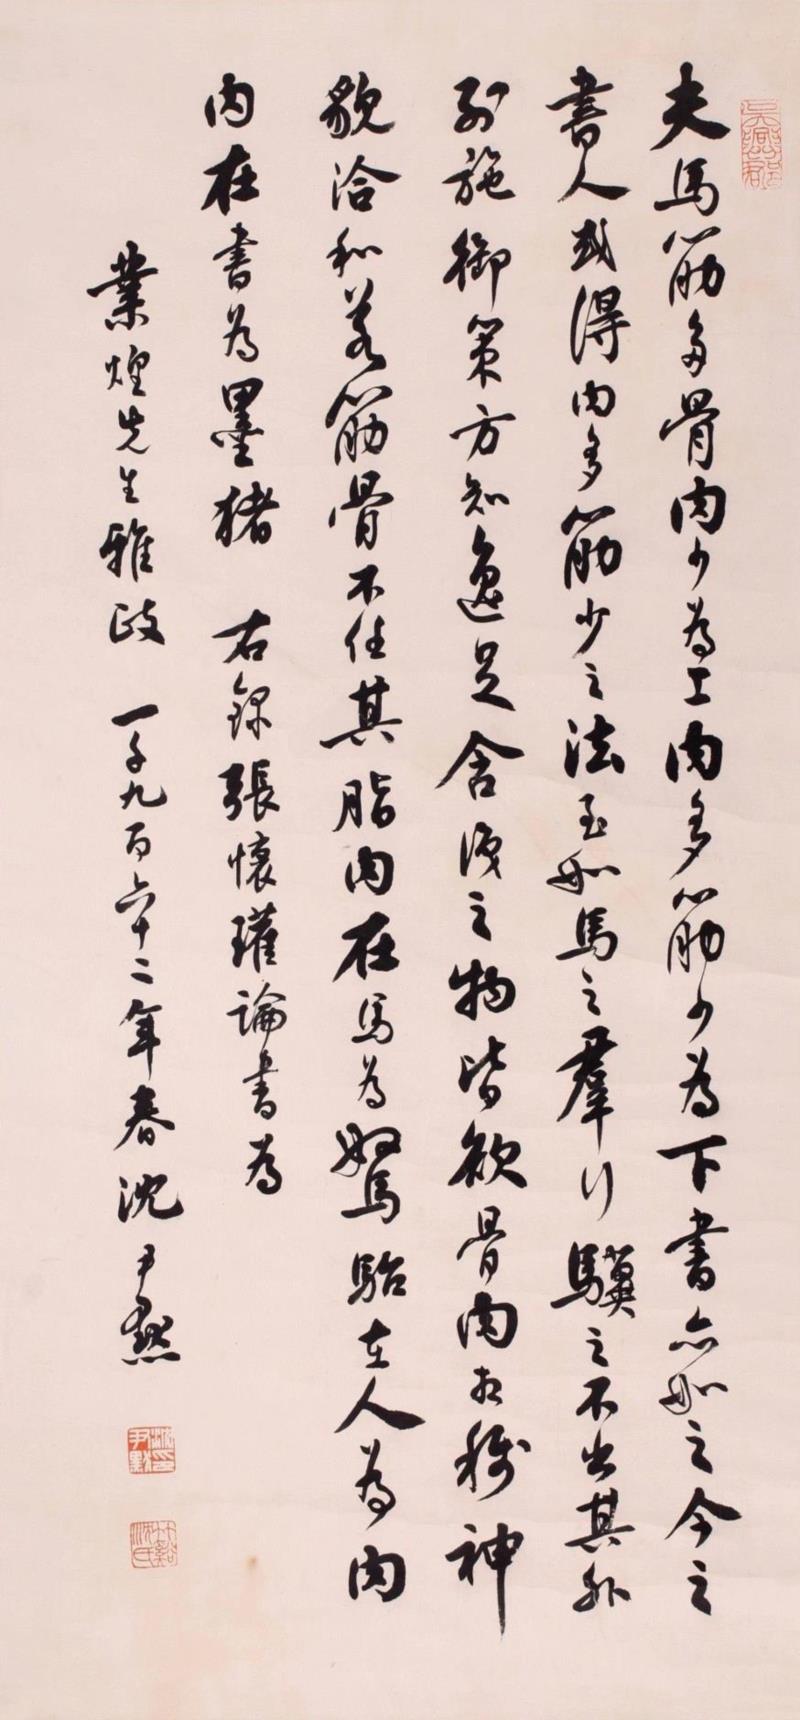 夫馬筋多骨肉少為工肉多筋少為下書亦如之今之
書人或得肉多筋少之法至如馬之羣行驥之不出其外
列施御策方知逸足含識之物皆欲骨肉相稱神
貌洽和若筋骨不任其脂肉在馬為駑駘在人為肉
肉在書為墨豬　右録張懷瓘論書為
業煌先生雅政　一千九百六十二年春沈尹默
沈尹默印
竹谿沈氏